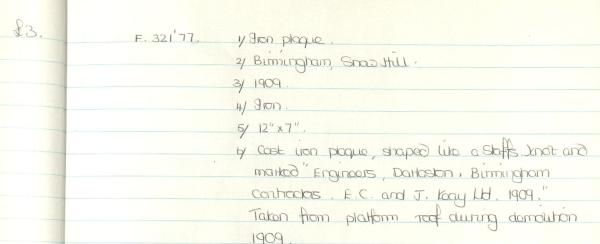 £3.
F. 321'77. 1/ Iron plaque.
2/ Birmingham, Snow Hill.
3/ 1909.
4/ Iron.
5/ 12" x 7".
6/ Cast iron plaque, shaped like a Staffs. knot and
marked "Engineers, Darlaston, Birmingham
Contractors. E.C. and J. Keay Ltd. 1909."
Taken from platform roof during demolition
1909.